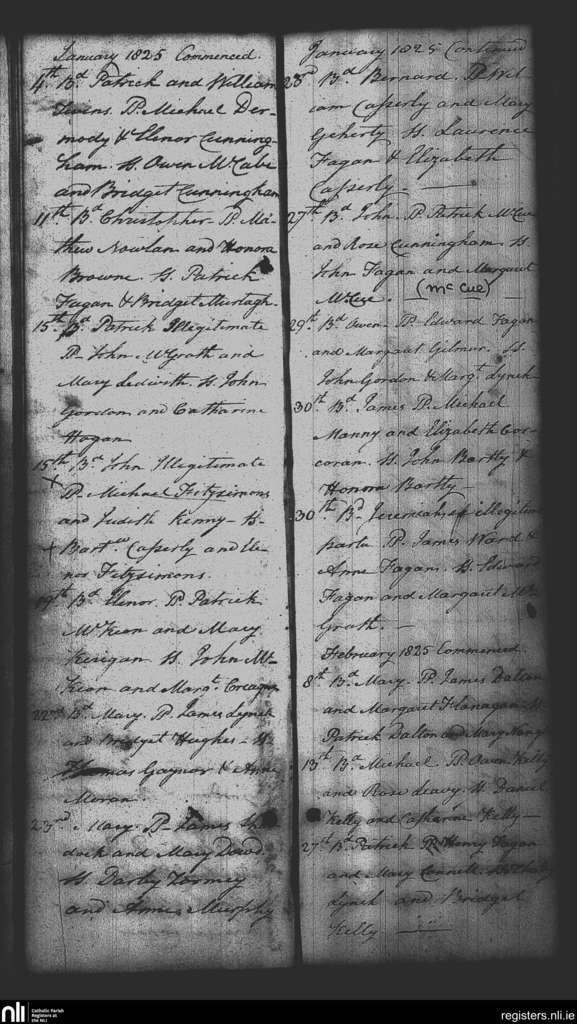 January 1825 Commenced.
4th. Bd. Patrick and William
Twins. P. Michael Der-
mody & Elenor Cunning-
ham. S. Owen McCabe
and Bridget Cunningham
11th. Bd. Christopher P. Ma-
thew Nowlan and Honora
Browne. S. Patrick
Fagan & Bridget Murtagh.
15th. Bd. Patrick Illegitimate
P. John McGrath and
Mary Ledwith. S. John
Gordon and Catharine
Hagan
15th. Bd. John Illegitimate
P. Michael Fitzsimons
and Judith Kenny - S.
Bartw. Casserly and Ele-
nor Fitzsimons.
19th. Bd. Elenor. P. Patrick
McKeon and Mary
Kerigan. S. John Mc-
Keon and Margt. Creagan
22nd. Bd. Mary. P. James Lynch
and Bridget Hughes - S.
Thomas Gaynor & Anne
Moran.
23rd. Mary. P. James
dock and Mary Dowd.
S. Darby Tormey
and Anne Murphy
January 1825 Continued
23rd. Bd. Bernard. P. Wil-
iam Casserly and Mary
Geherty S. Laurence
Fagan & Elizabeth
Casserly.
27th. Bd. John. P. Patrick McCue
and Rose Cunningham. S.
John Fagan and Margaret
McCue. (Mc Cue)
29th. Bd. Owen. P. Edward Fagan
and Margaret Gilmor. S.
John Gordon & Margt. Lynch
30th. Bd. James P. Michael
Manny and Elizabeth Cor-
coran. S. John Bartly &
Honora Bartly -
30th. Bd. Jeremiah, illegitim
partu P. James Ward &
Anne Fagan. S. Edward
Fagan and Margaret Mc-
Grath. -
February 1825 Commenced.
8th. Bd. Mary. P. James Dalton
and Margaret Flanagan. S.
Patrick Dalton and Mary
13th. Bd. Michael. P. Owen Kelly
and Rose Leavy. S. Daniel
Kelly and Catharine Kelly -
27th. Bd. Patrick P. Henry Fagan
and Mary Connell.
Lynch and Bridget
Kelly
nli
Catholic Parish
Registers at
the NLI
registers.nli.ie